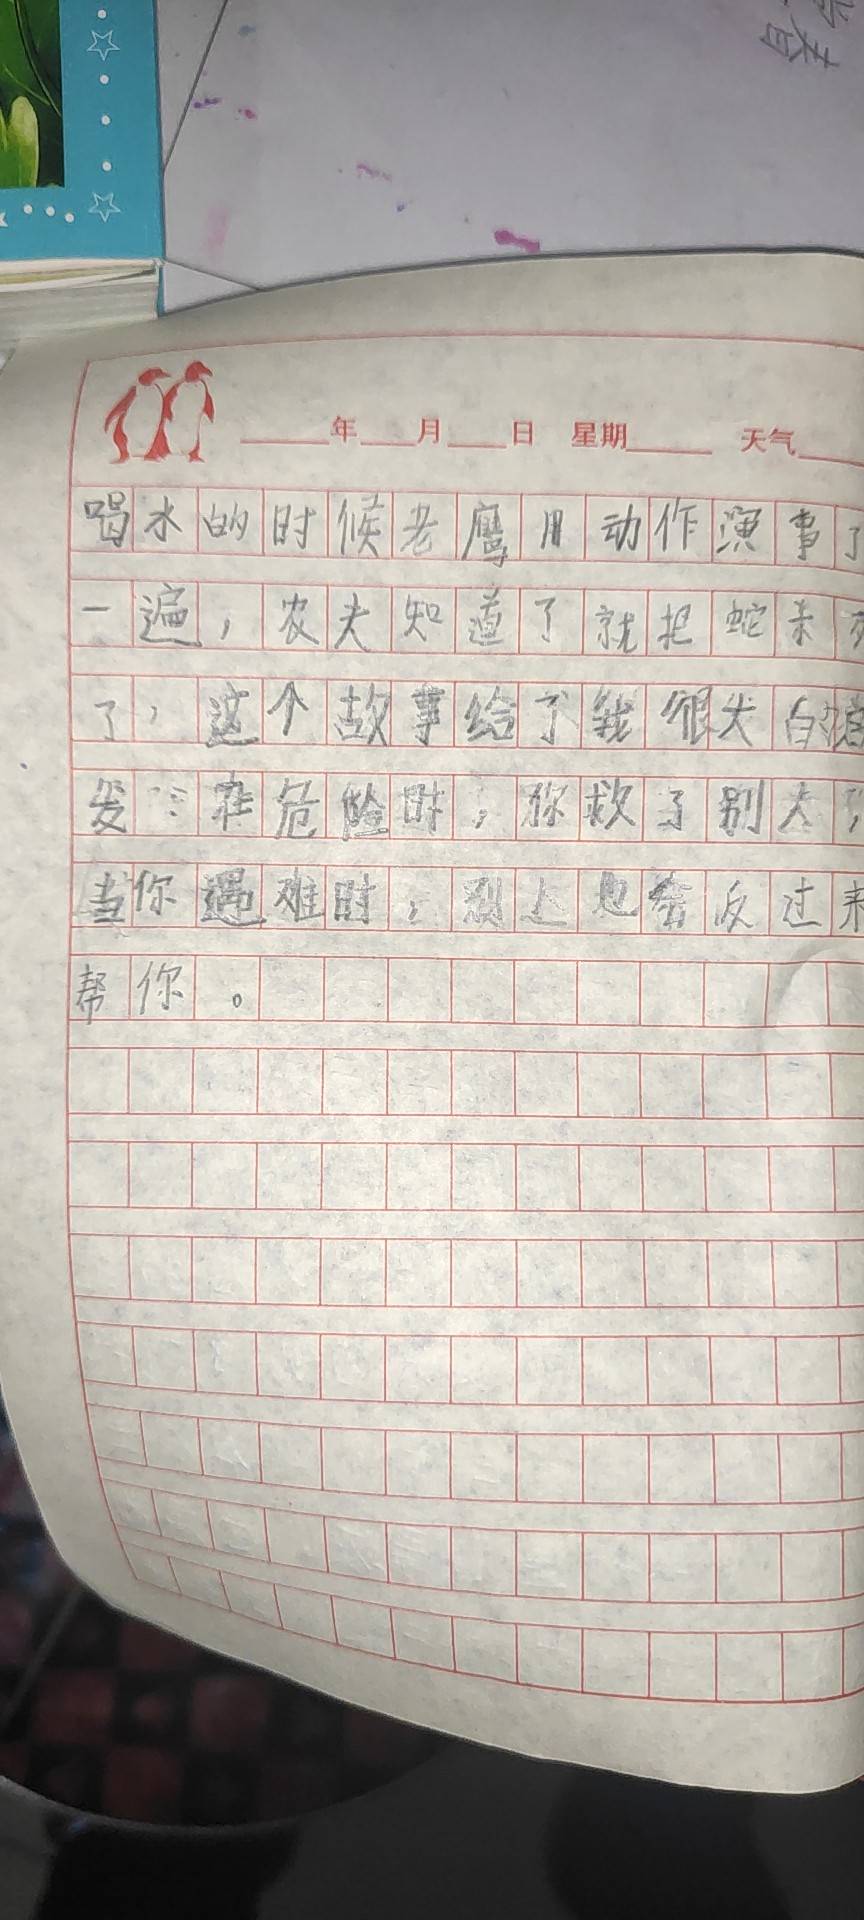 年 月 日 星期 天气
喝水的时候老鹰用动作演事了
一遍，农夫知道了就把蛇杀
了，这个故事给了我很大的
发：在危险时，你救了别人，
当你遇难时，别人也会反过来
帮你。